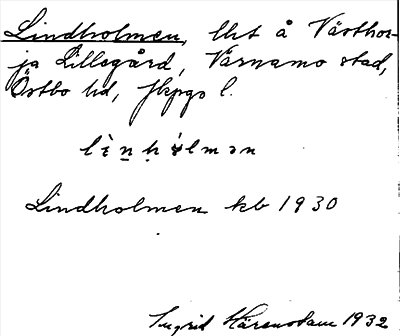 Lindholmen, lht å Västhor-
ja Lillegård, Värnamo stad,
Östbo hd, Jkpgs l.
Lindholmen kb 1930
Ingrid Härenstam 1932